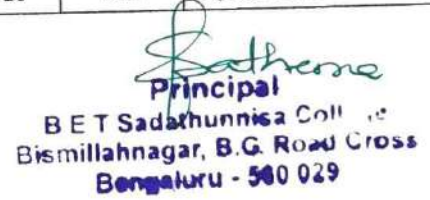 Principal
B E T Sadathunnisa Coll
Bismillahnagar, B.G. Road Cross
Bengaluru - 560 029